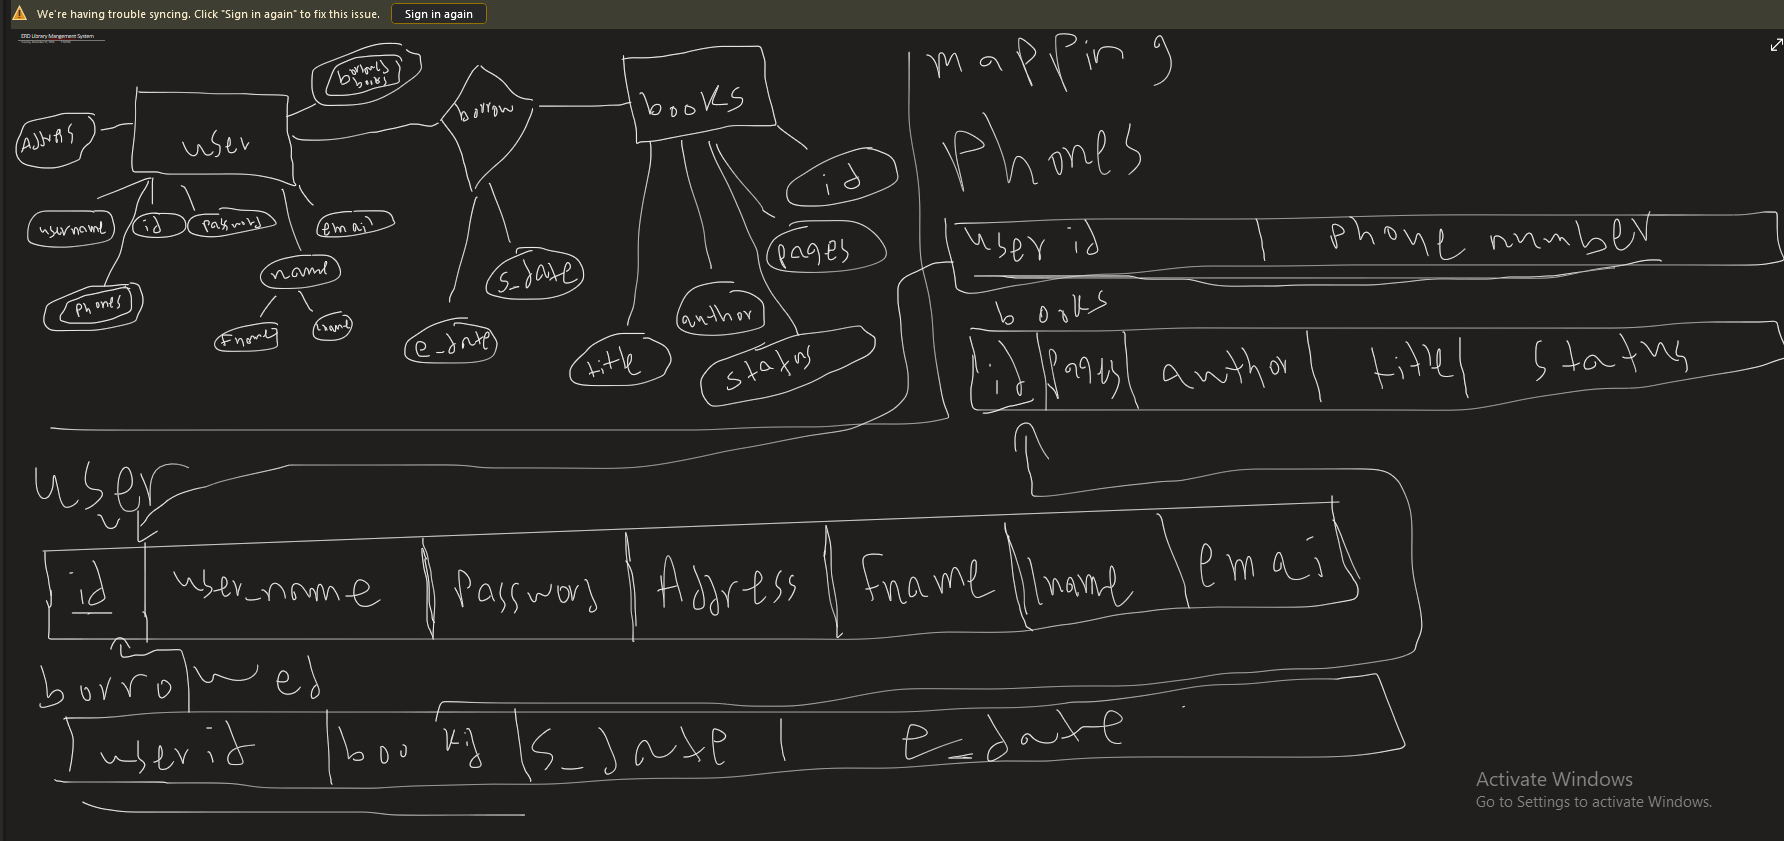 We're having trouble syncing. Click "Sign in again" to fix this issue. Sign in again
ERD Library Mangement System
borrowed
books
Address
user
borrow
books
username
id
password
email
name
Phones
Fname
lname
s_date
e_date
id
pages
author
title
status
mapping
Phones
user id | phone number
books
id | pages | author | title | status
user
id | user_name | Password | Address | Fname | lname | emai
borrowed
user id | book id | s_date | e_date
Activate Windows
Go to Settings to activate Windows.